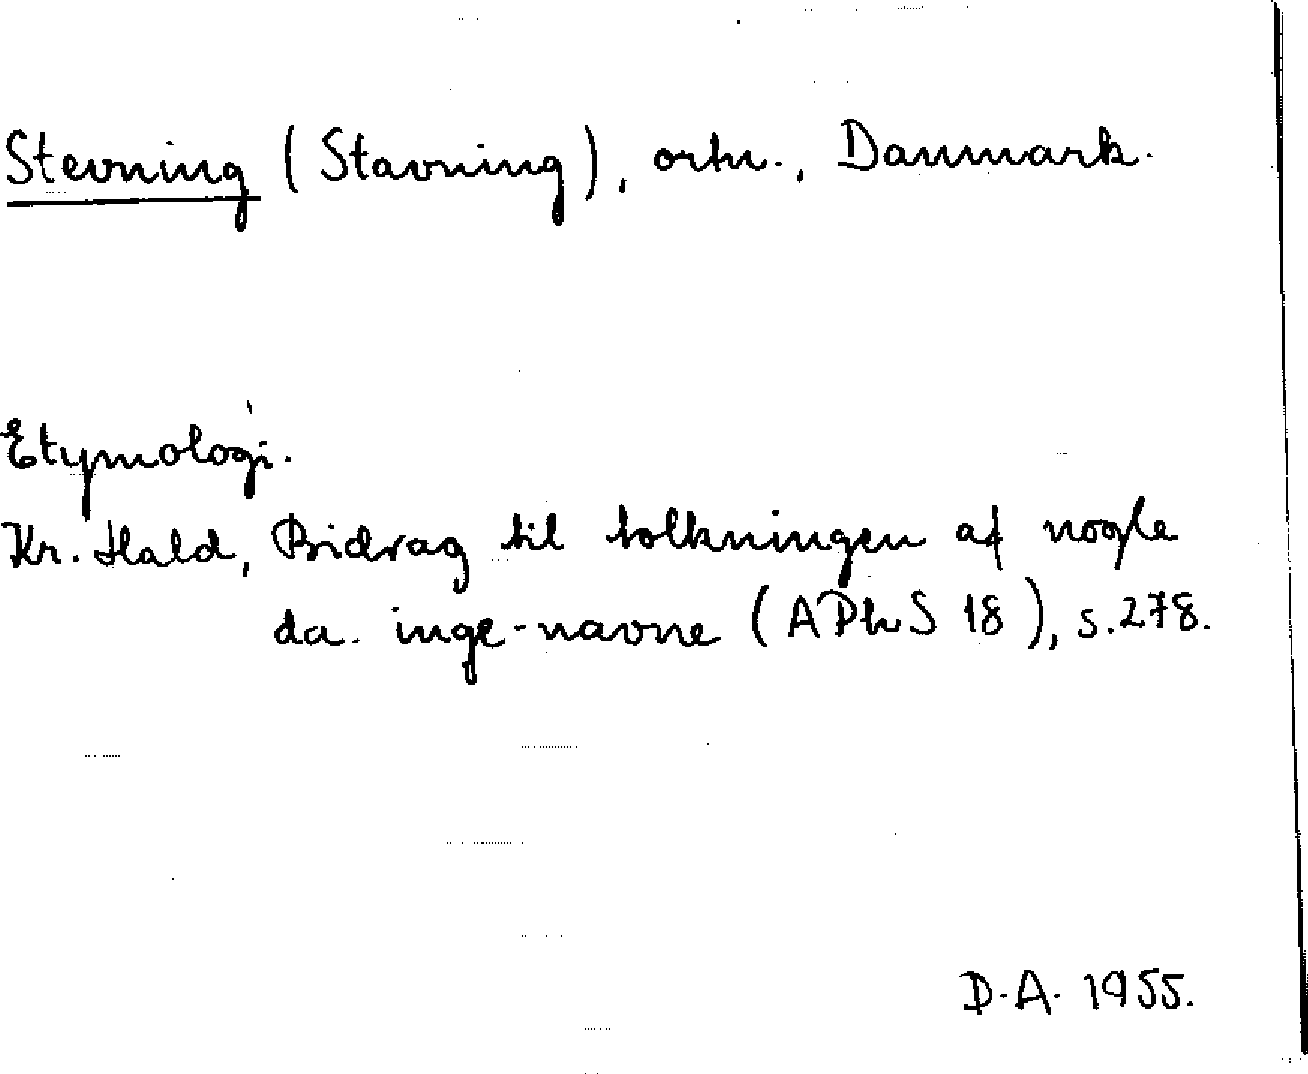 Stevning (Stavning), ortn., Danmark.
Etymologi.
Kr. Hald, Bidrag til tolkningen af nogle
da. inge-navne (APhS 18), s. 278.
D.A. 1955.